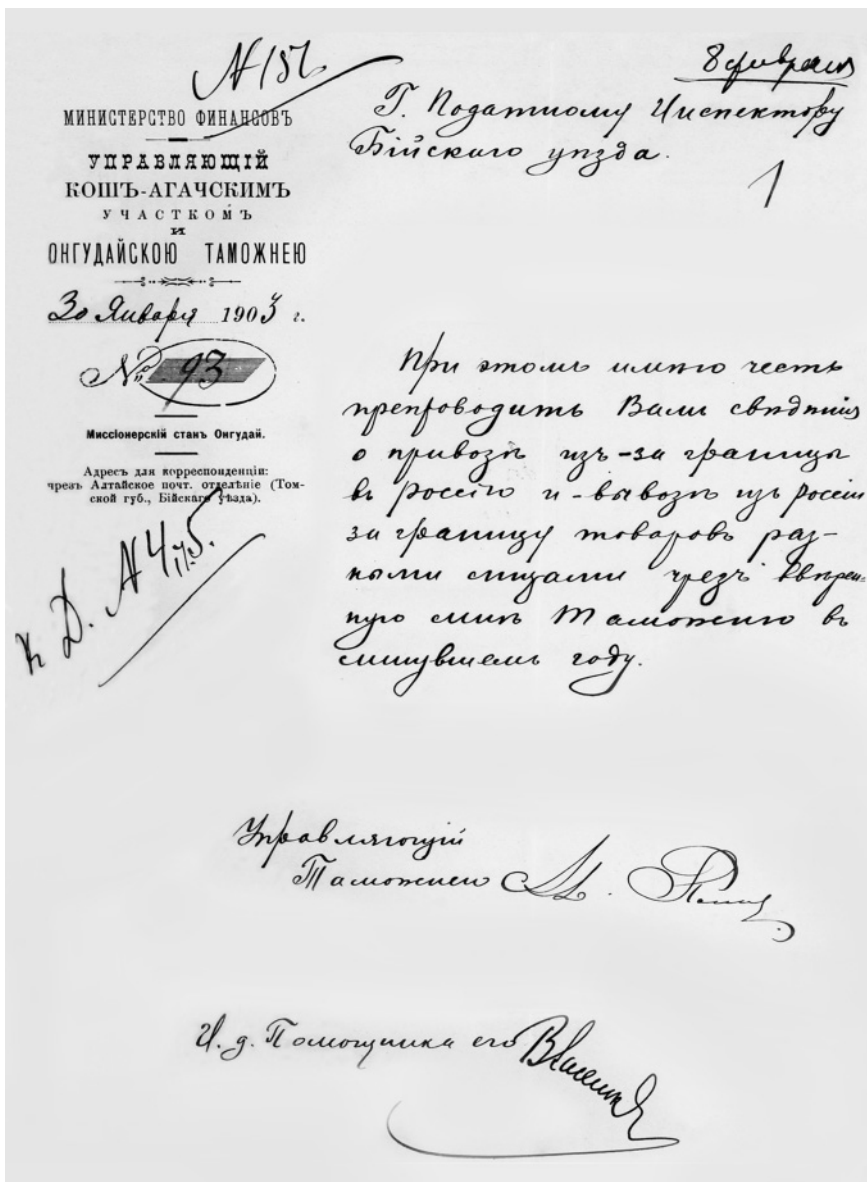 8 февраля
МИНИСТЕРСТВО ФИНАНСОВЪ
УПРАВЛЯЮЩІЙ
КОШЪ-АГАЧСКИМЪ
УЧАСТКОМЪ
и
ОНГУДАЙСКОЮ ТАМОЖНЕЮ
30 Января 1903 г.
№ 93
Миссіонерскій станъ Онгудай.
Адресъ для корреспонденціи:
чрезъ Алтайское почт. отдѣленіе (Том-
ской губ., Бійскаго уѣзда).
Къ Д. №
Г. Податному Инспектору
Бійскаго уѣзда.
1
При этомъ имѣю честь
препроводить Вамъ свѣдѣнія
о привозѣ изъ-за границы
въ Россію и вывозѣ изъ Россіи
за границу товаровъ раз-
ными лицами чрезъ ввѣрен-
ную мнѣ Таможню въ
минувшемъ году.
Управляющій
Таможнею
И. д. Помощника его